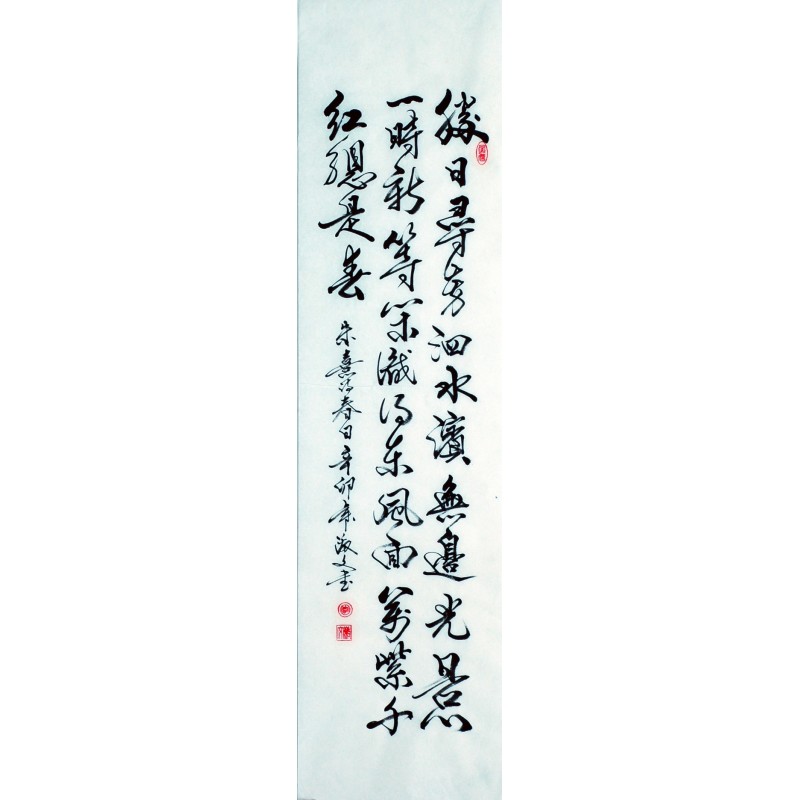 勝日尋芳泗水濱無邊光景
一時新等閑識得東風面萬紫千
紅總是春
朱熹詩春日辛卯年淑文書